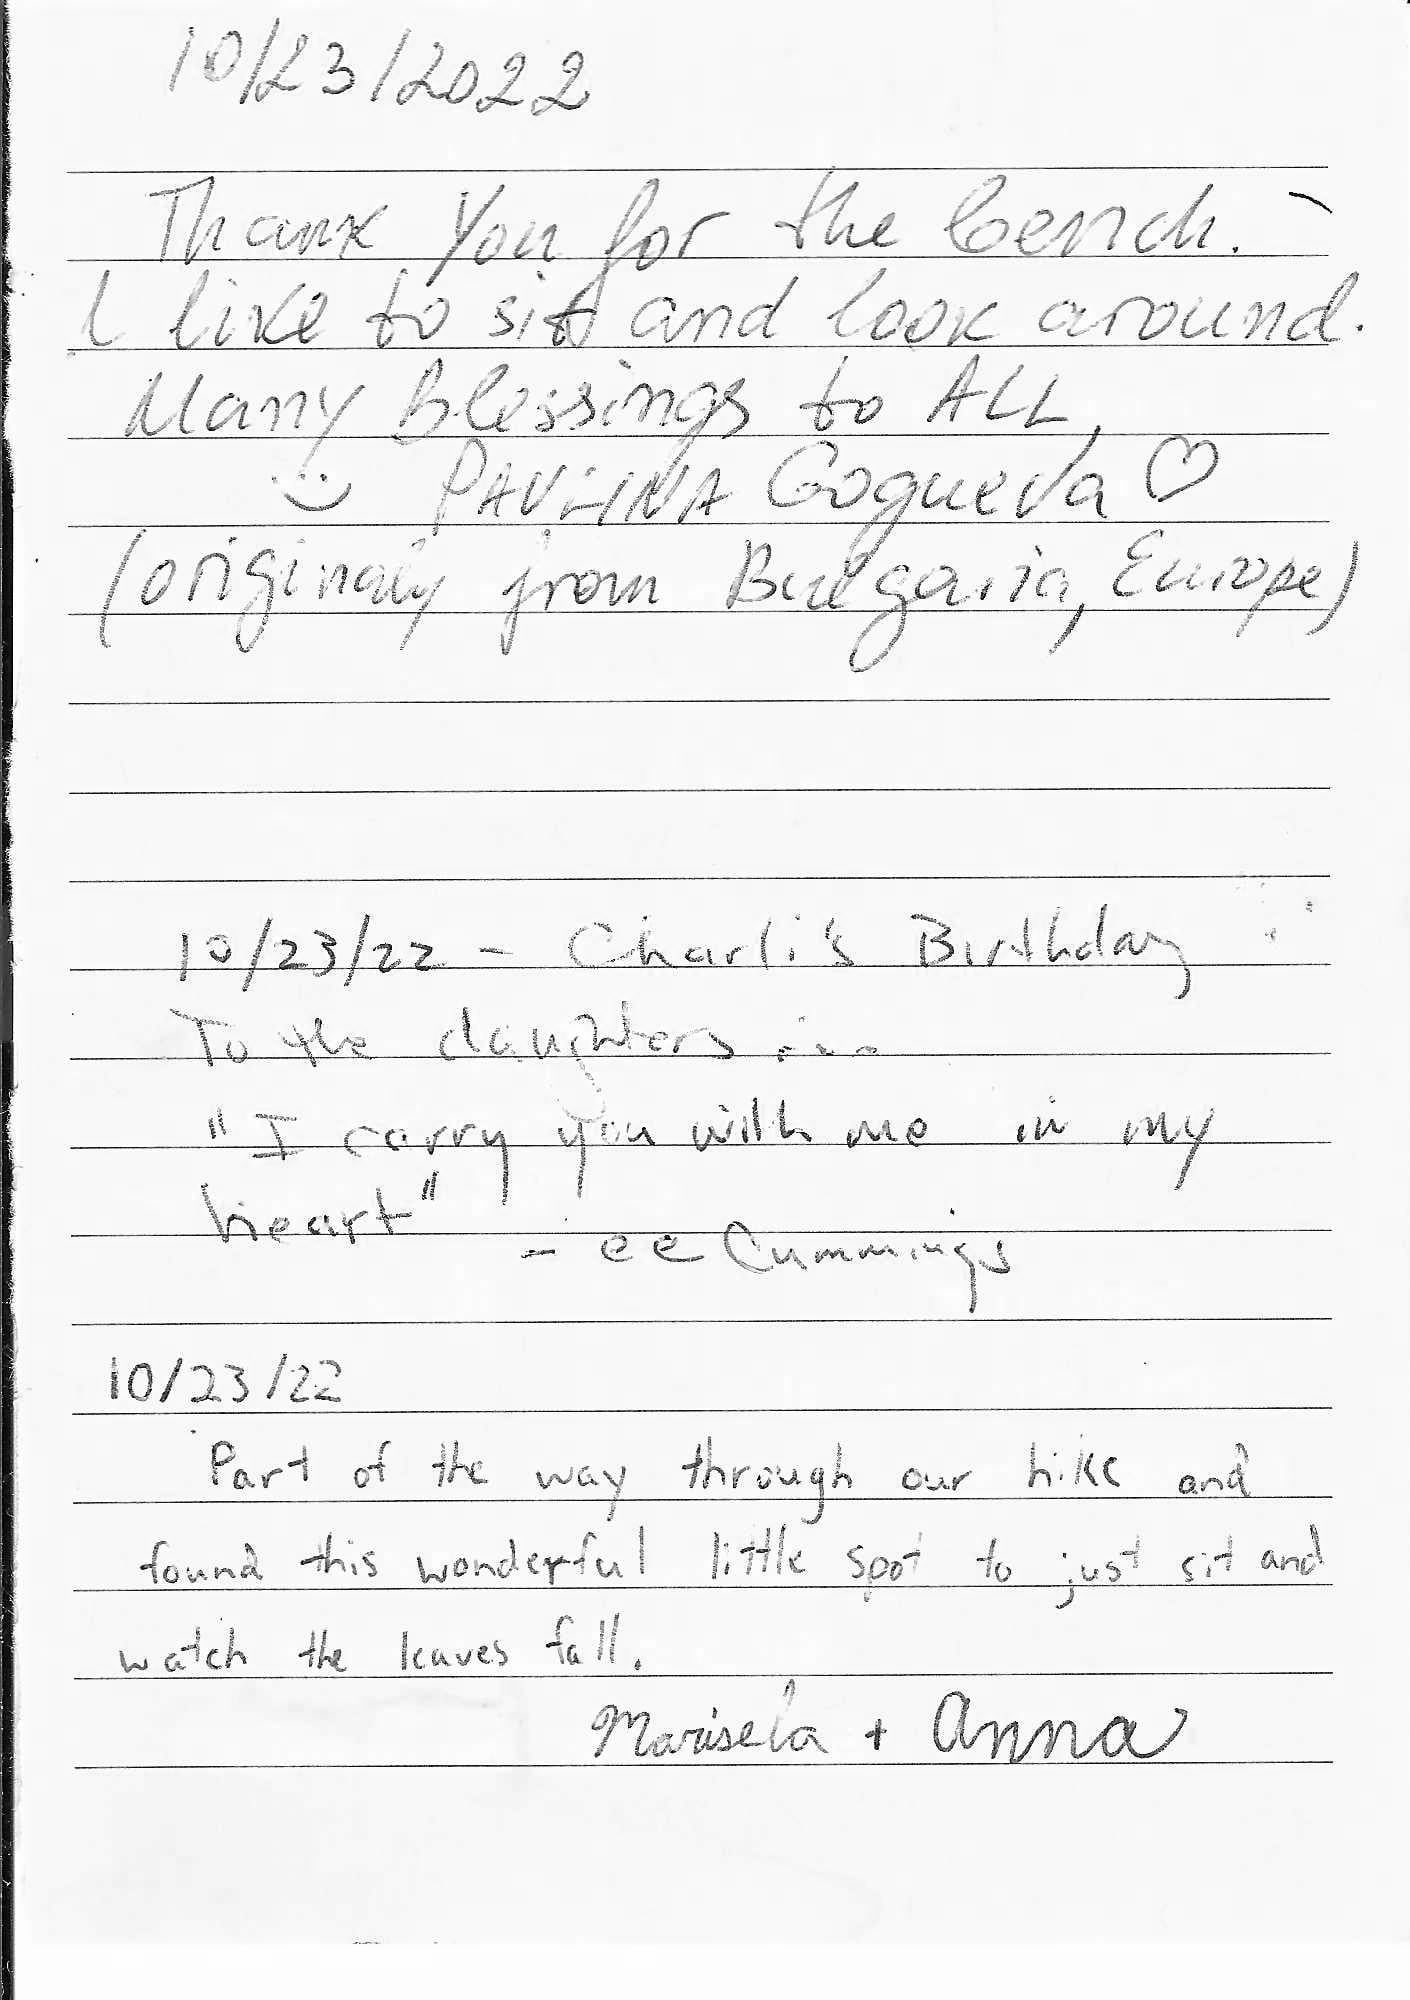 10/23/2022
Thank You for the bench.
I like to sit and look around.
Many Blessings to ALL,
PAVLINA Gogueva ♡
(originaly from Bulgaria, Europe)
10/23/22 - Charli's Birthday
To the daughters ...
"I carry you with me in my
heart"
- ee Cummings
10/23/22
Part of the way through our hike and
found this wonderful little spot to just sit and
watch the leaves fall.
Marisela + Anna